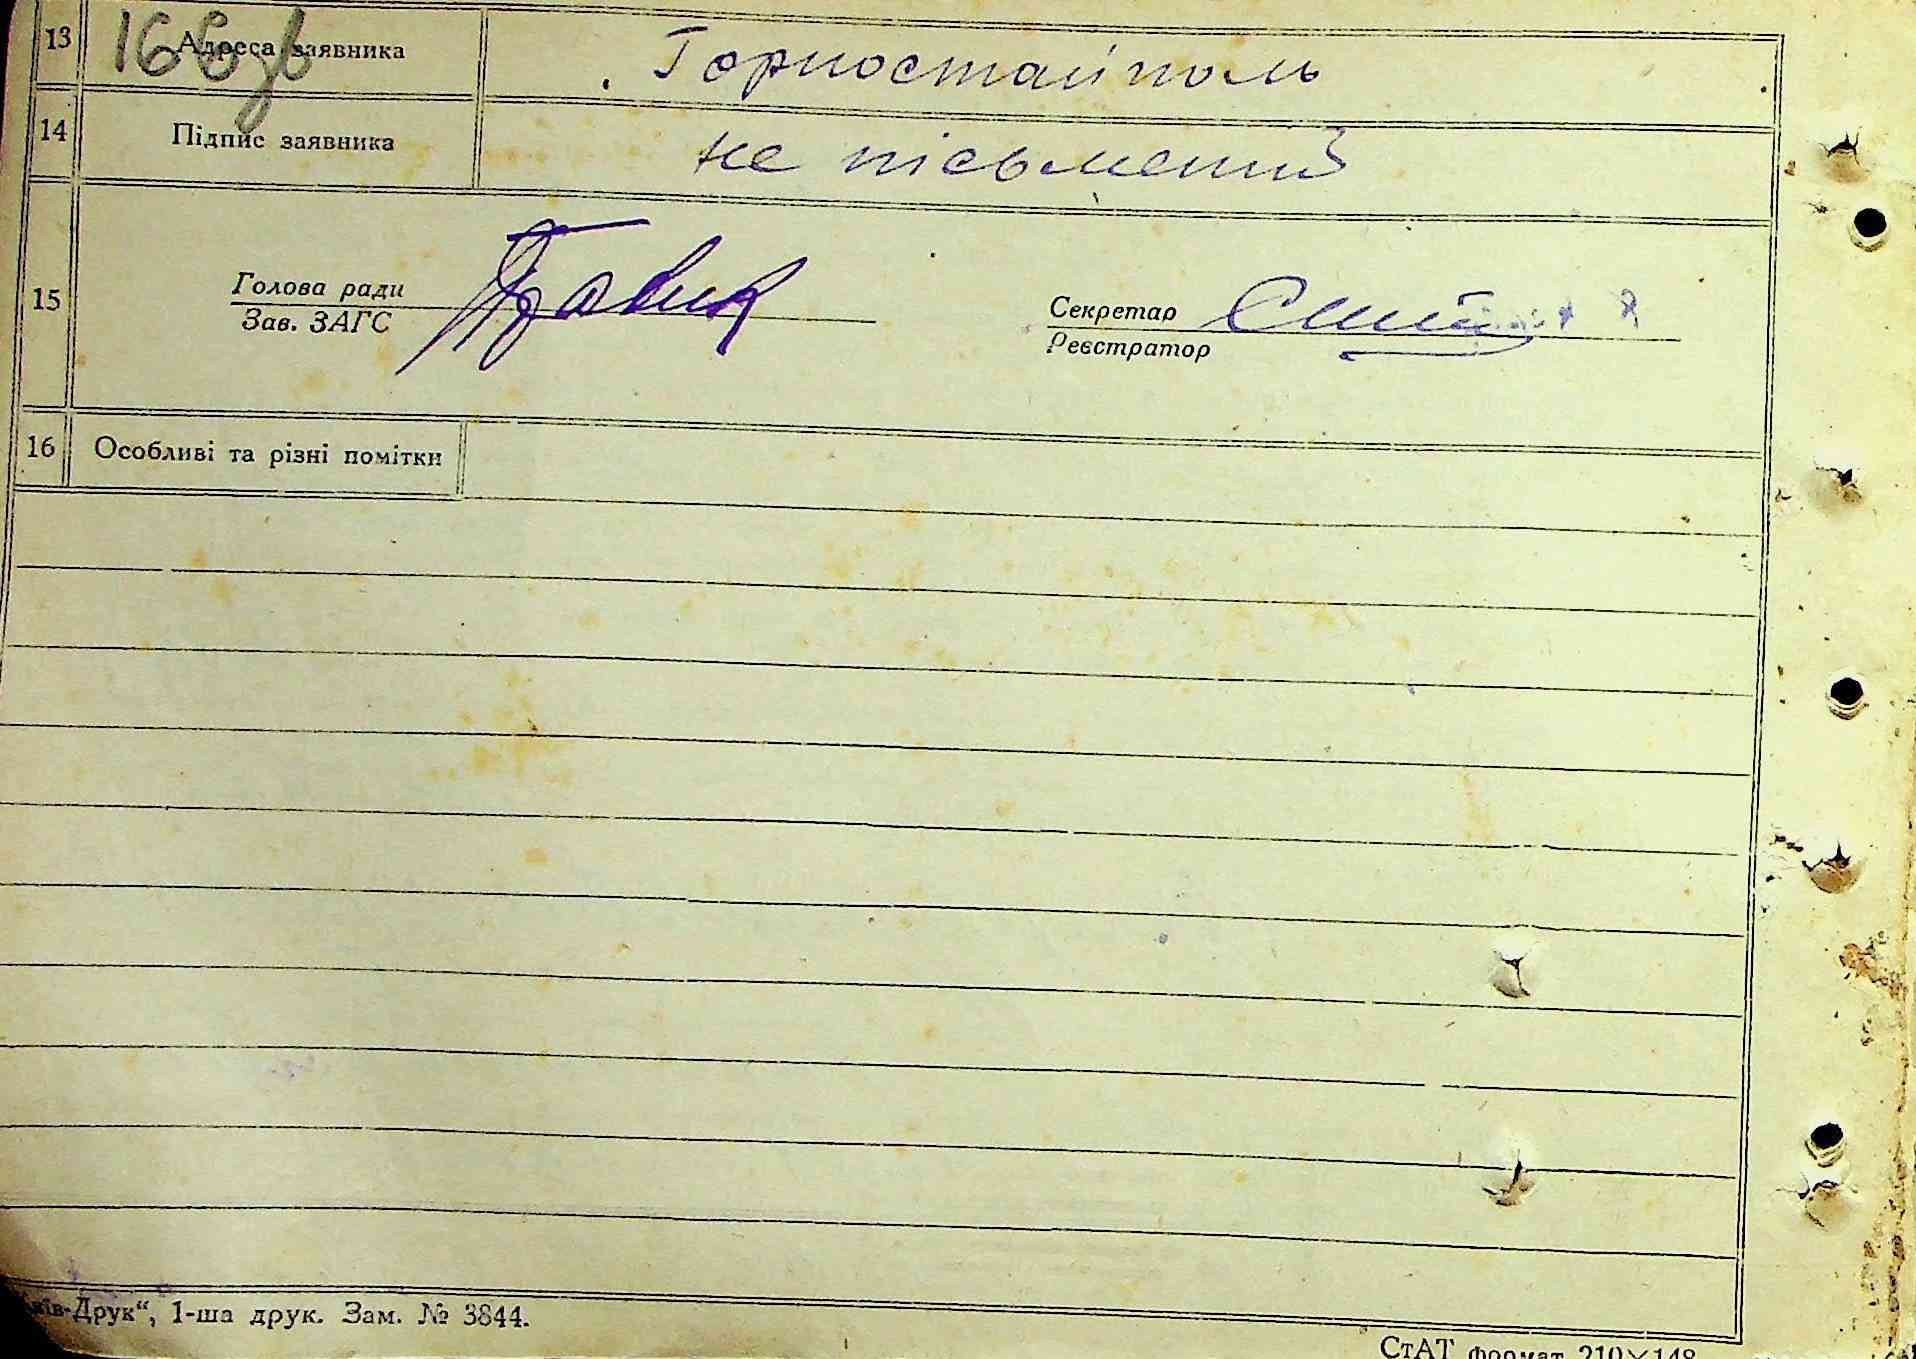 13 Адреса заявника Горностайполь
14 Підпис заявника не пісьмений
15 Голова ради
Зав. ЗАГС
Секретар
Реєстратор
16 Особливі та різні помітки
Київ-Друк“, 1-ша друк. Зам. № 3844.
СтАТ формат 210×148